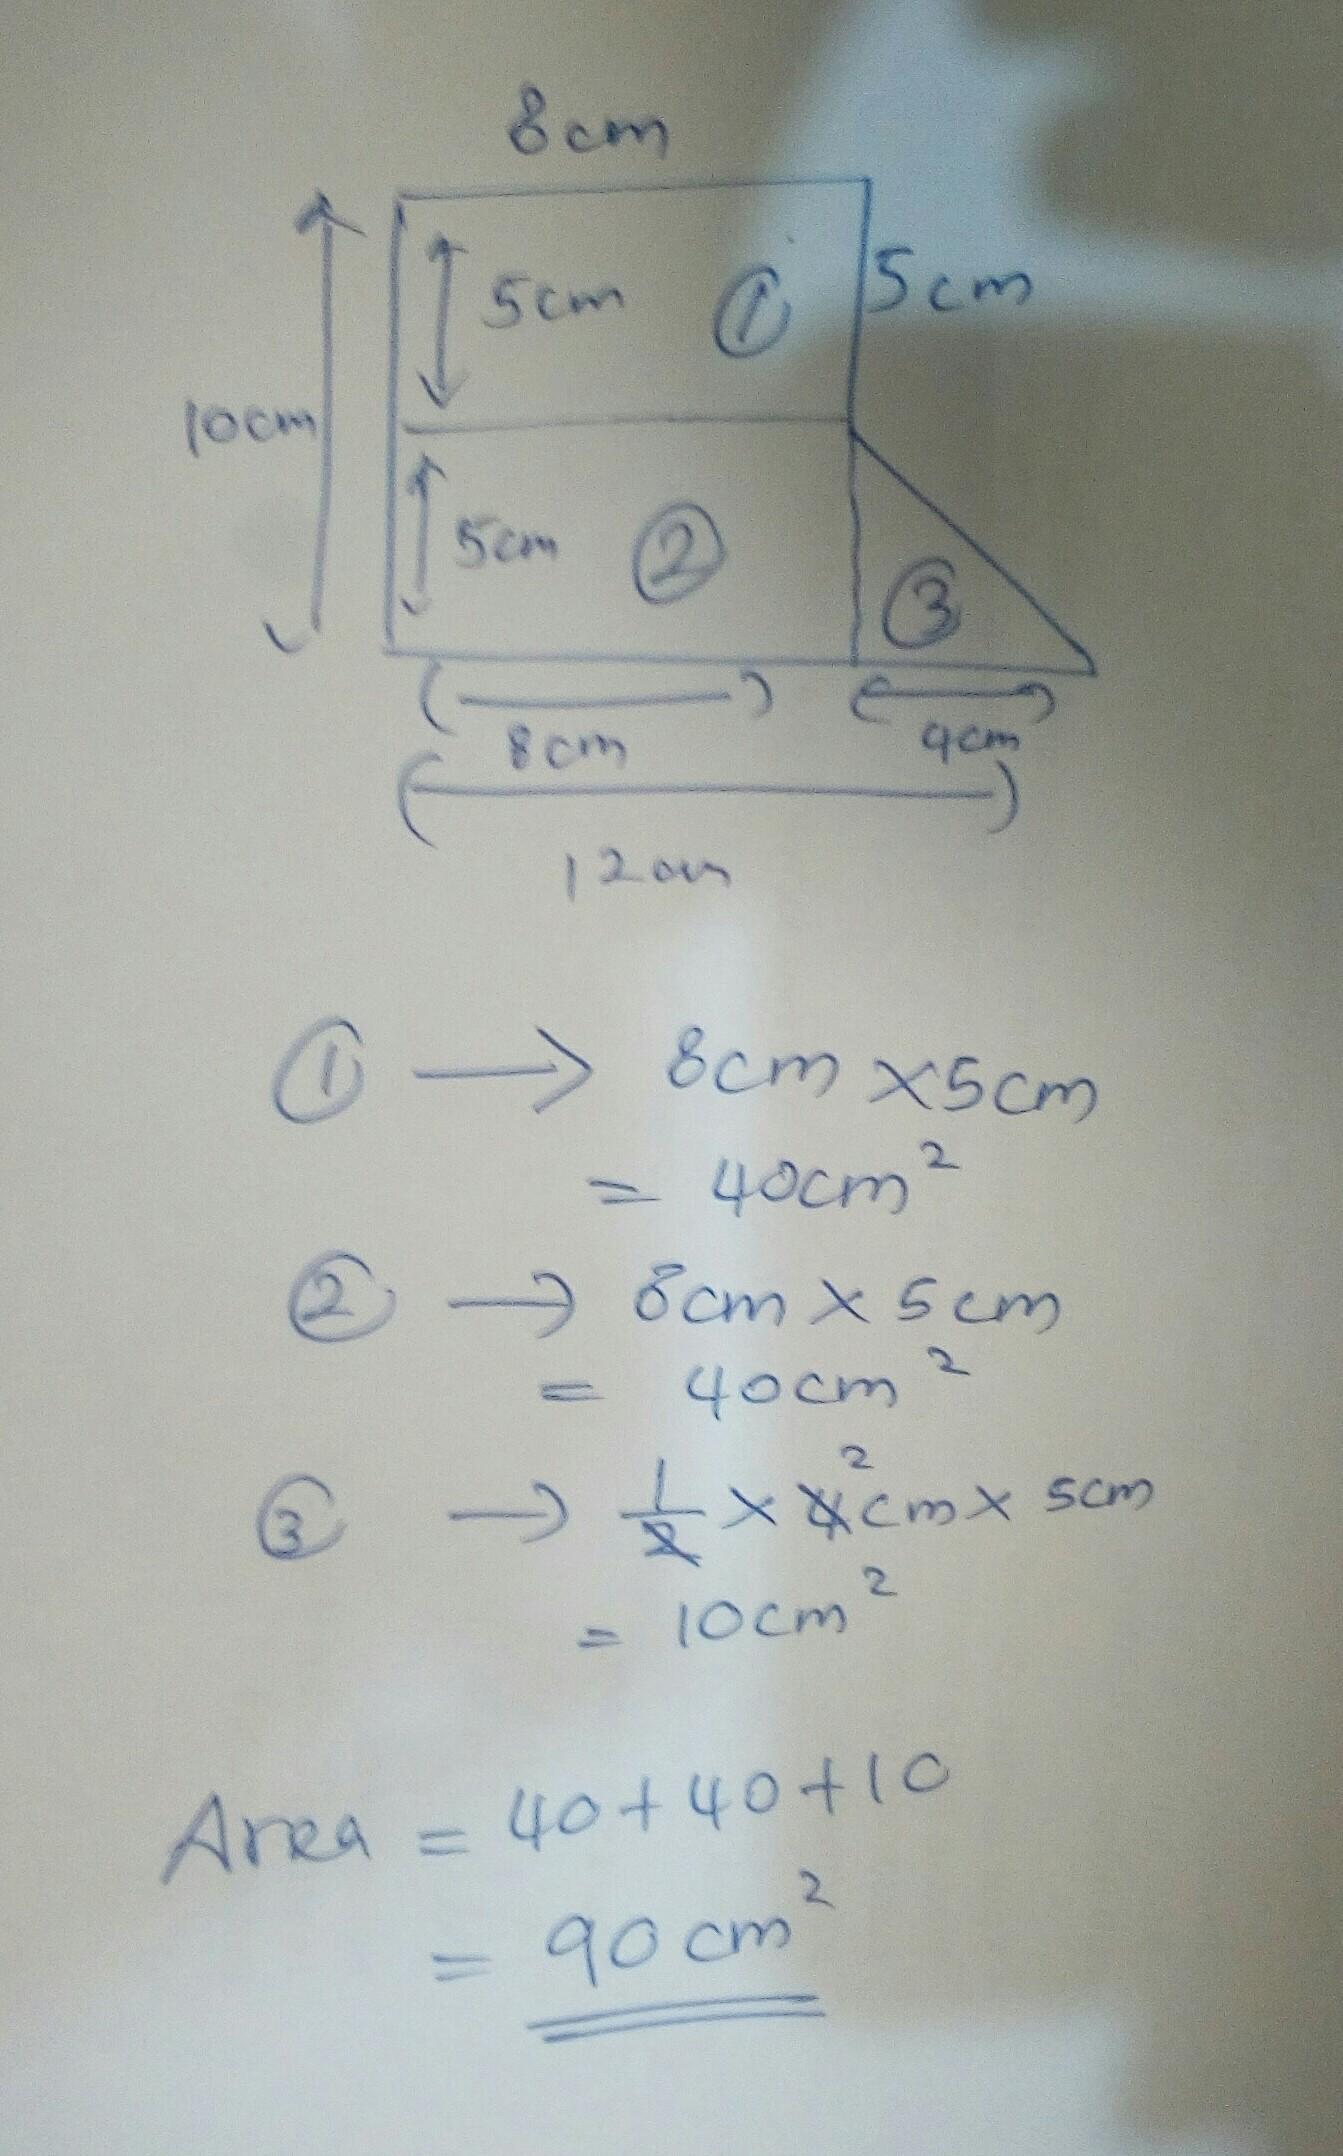 8cm
5cm ① 5cm
10cm
5cm ② ③
8cm 4cm
12cm
① → 8cm ×5cm
= 40cm²
② → 8cm × 5cm
= 40cm²
③ → 1/2 × 4 2 cm × 5cm
= 10cm²
Area = 40+40+10
= 90cm²